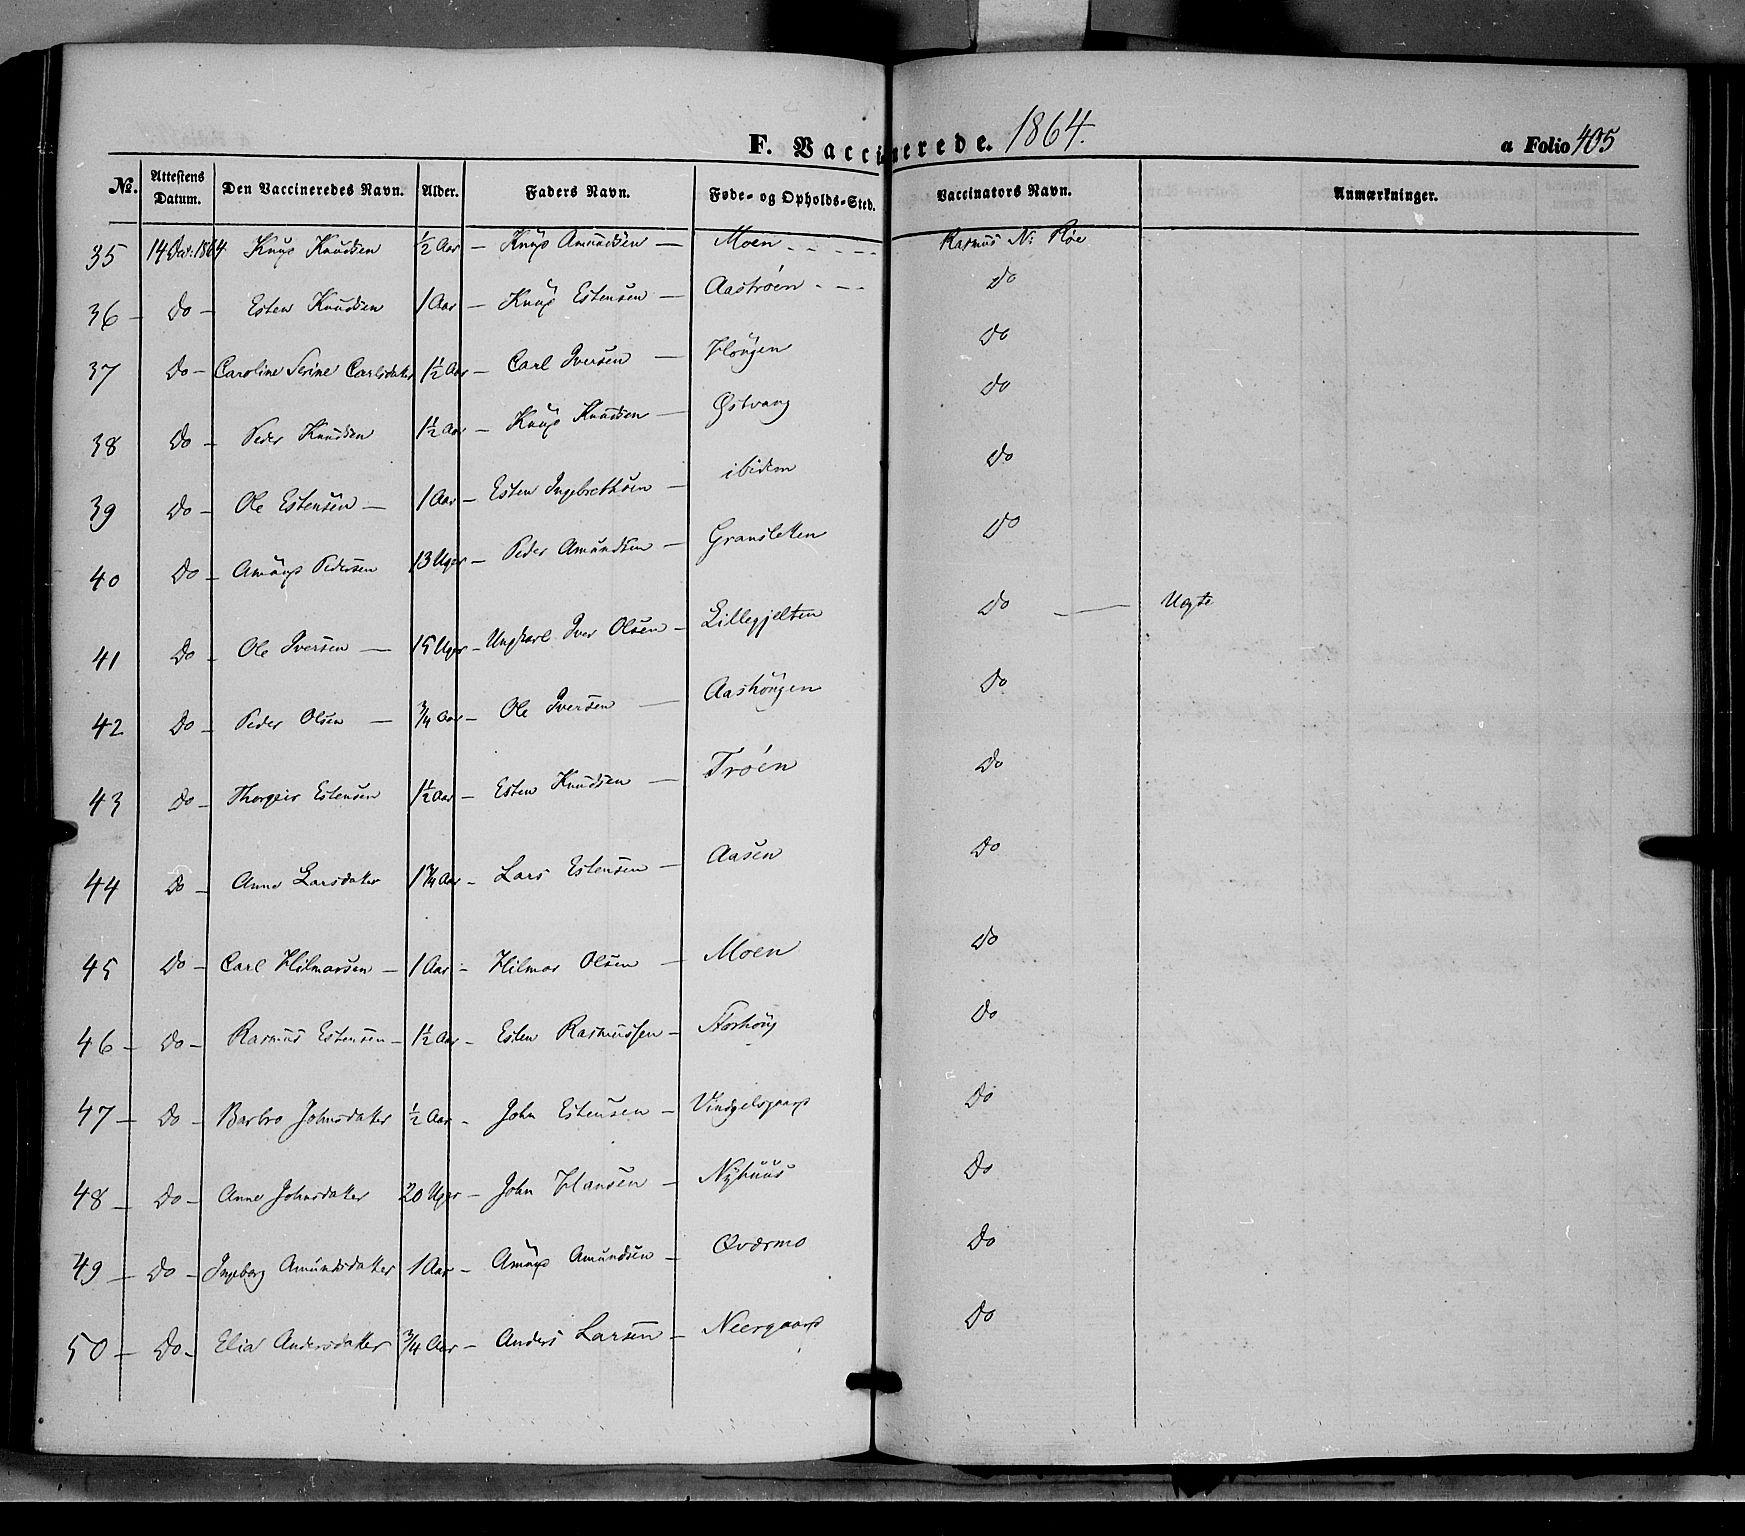 F. Vaccinerede. 1864.
a Folio 405
No. Attestens Datum. Den Vaccineredes Navn. Alder. Faders Navn. Føde- og Opholds-Sted. Vaccinators Navn. Anmærkninger.
35 14 Dec: 1864. Knud Knudsen ½ Aar – Knud Amundsen – Moen Rasmus N: Høe
36 – Do – Esten Knudsen 1 Aar – Knud Estensen – Aastrøen Do
37 Do – Caroline Serine Carlsdatter 1½ Aar – Carl Iversen – Hougen Do
38 Do – Peder Knudsen 1½ Aar – Knud Knudsen – Østvang Do
39 Do – Ole Estensen – 1 Aar – Esten Ingebrethsen – ibidem Do
40 Do – Amund Pedersen 13 Uger – Peder Amundsen – Gransletten Do
41 Do – Ole Iversen – 15 Uger – Ungkarl Iver Olsen – Lillegjelten Do – Uægte
42 Do – Peder Olsen – ¾ Aar – Ole Iversen – Aashougen Do
43 Do – Thorgeir Estensen 1½ Aar – Esten Knudsen – Trøen Do
44 Do – Anne Larsdatter 1¾ Aar – Lars Estensen – Aasen Do
45 Do – Carl Hilmarsen – 1 Aar – Hilmar Olsen – Moen Do
46 – Do – Rasmus Estensen – 1½ Aar – Esten Rasmussen – Storhoug Do
47 – Do – Barbro Johnsdatter ½ Aar – John Estensen – Vindgelsgaard Do
48 – Do – Anne Johnsdatter 20 Uger – John Hansen – Nyhuus Do
49 – Do – Ingeborg Amundsdatter 1 Aar – Amund Amundsen – Qværmo Do
50 – Do – Elia Andersdatter ¾ Aar – Anders Larsen – Neergaard Do